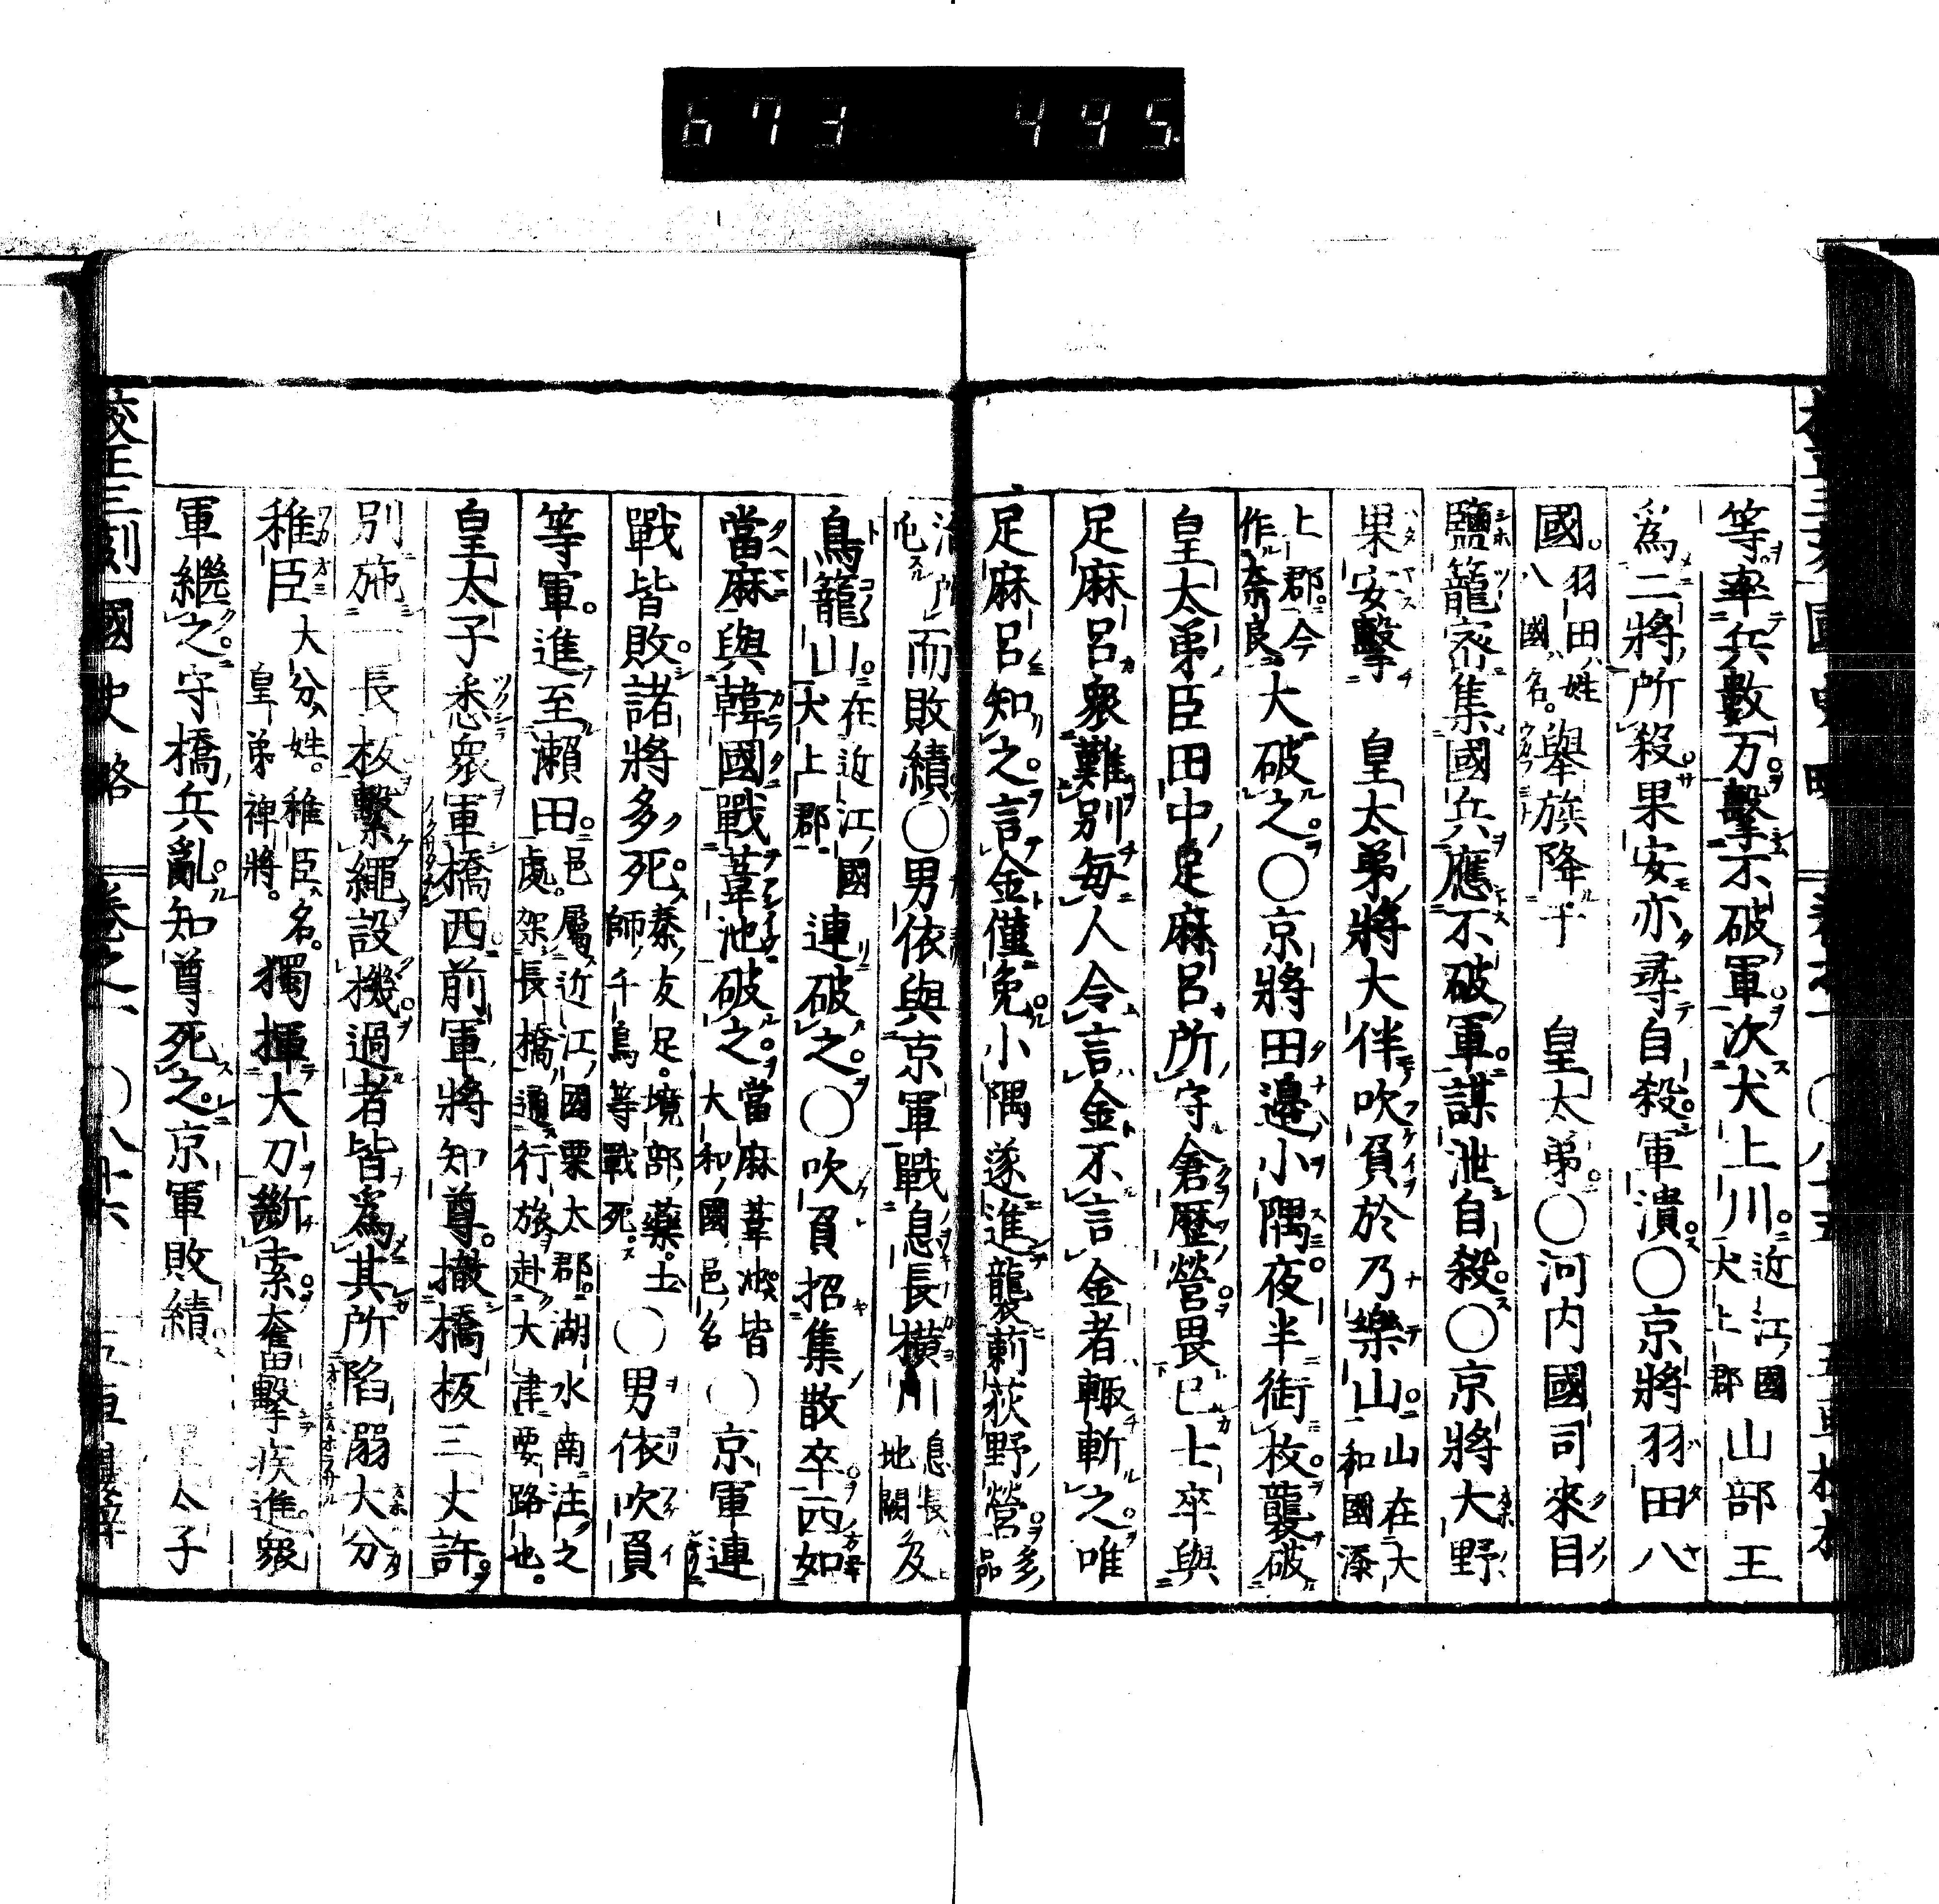 673 495
等率兵數万擊不破軍次犬上川近江國犬上郡山部王
爲二將所殺果安亦尋自殺軍潰〇京將羽田八
國羽田姓八國名舉族降于 皇太弟〇河内國司來目
鹽籠密集國兵應不破軍謀泄自殺〇京將大野
果安擊 皇太弟將大伴吹負於乃樂山山在大和國添
上郡今作奈良大破之〇京將田邊小隅夜半銜枚襲破
皇太弟臣田中足麻呂所守倉歷營畏己士卒與
足麻呂衆難別每人令言金不言金者輙斬之唯
足麻呂知之言金僅免小隅遂進襲莿萩野營多品
而敗績〇男依與京軍戰息長橫川息長地闕及
鳥籠山在近江國犬上郡連破之〇吹負招集散卒西如
當麻與韓國戰葦池破之當麻葦池皆大和國邑名〇京軍連
戰皆敗諸將多死秦友足境部藥土師千鳥等戰死〇男依吹負
等軍進至瀨田邑屬近江國栗太郡湖水南注之處架長橋通行旅赴大津要路也
皇太子悉衆軍橋西前軍將知尊撤橋板三丈許
別施一長板繫繩設機過者皆爲其所陷溺大分
稚臣大分姓稚臣名皇弟裨將獨揮大刀斷索奮擊疾進衆
軍繼之守橋兵亂知尊死之京軍敗績 子
校正三刻 國史略 卷之一 〇八十六